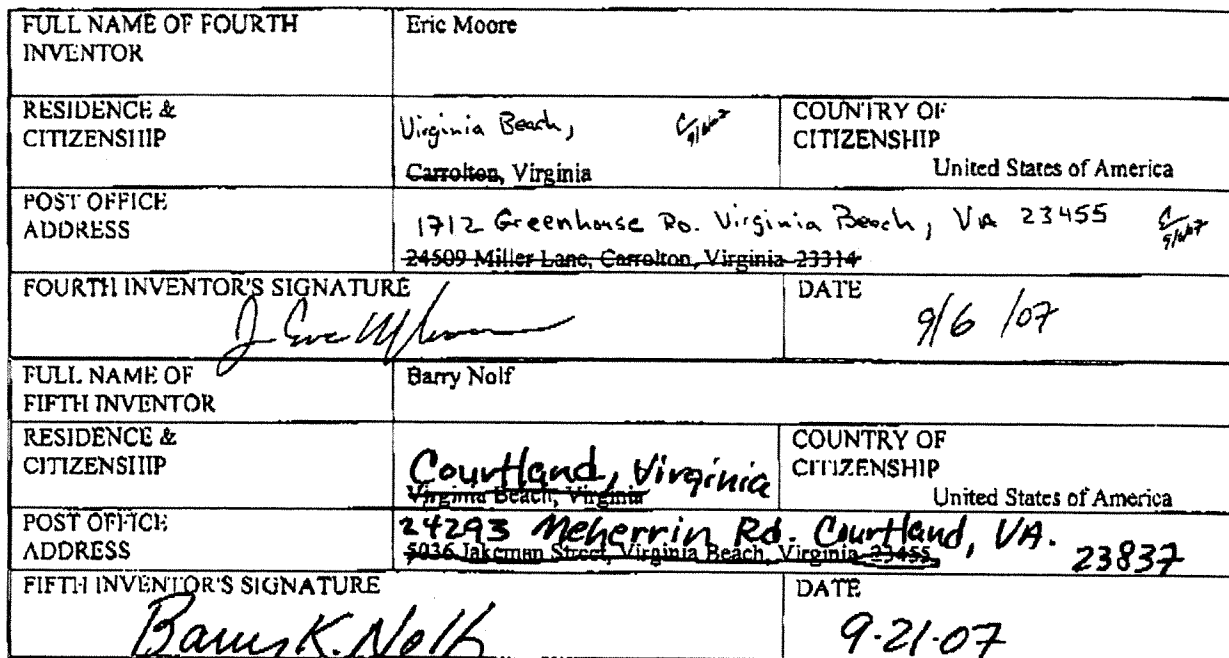 FULL NAME OF FOURTH INVENTOR
Eric Moore
RESIDENCE & CITIZENSHIP
Virginia Beach, 9/6/07
Carrolton, Virginia
COUNTRY OF CITIZENSHIP
United States of America
POST OFFICE ADDRESS
1712 Greenhouse RD. Virginia Beach, VA 23455 9/6/07
24509 Miller Lane, Carrolton, Virginia 23314
FOURTH INVENTOR'S SIGNATURE
DATE
9/6/07
FULL NAME OF FIFTH INVENTOR
Barry Nolf
RESIDENCE & CITIZENSHIP
Courtland, Virginia
Virginia Beach, Virginia
COUNTRY OF CITIZENSHIP
United States of America
POST OFFICE ADDRESS
24293 Meherrin Rd. Courtland, VA. 23837
5036 Jakeman Street, Virginia Beach, Virginia 23455
FIFTH INVENTOR'S SIGNATURE
Barry K. Nolf
DATE
9-21-07